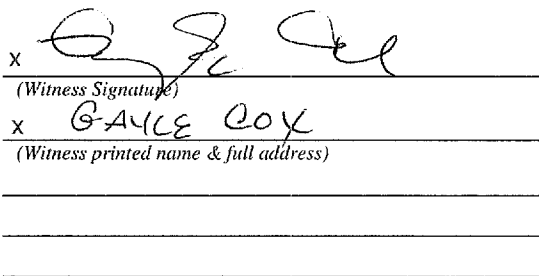 X
(Witness Signature)
X GAYLE COX
(Witness printed name & full address)